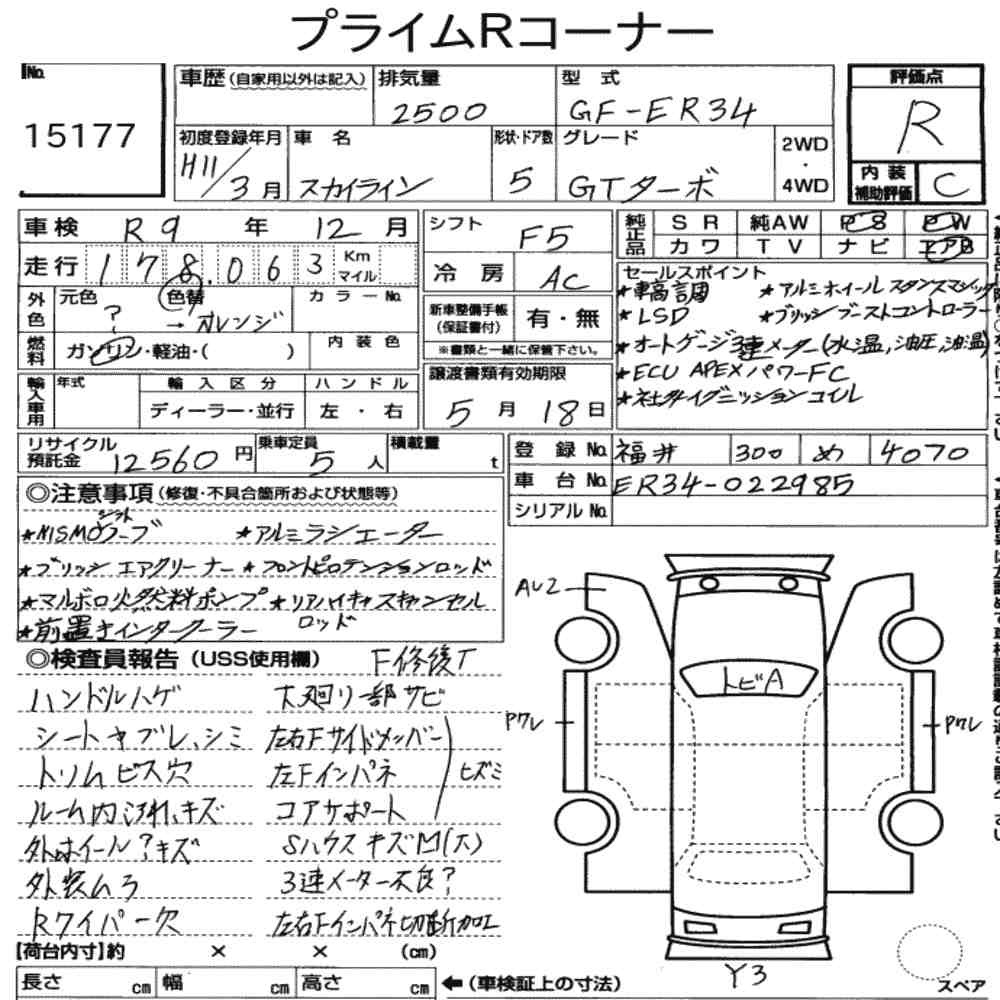 プライムRコーナー
No.
15177
車歴 (自家用以外は記入)
排気量
2500
型 式
GF-ER34
評価点
R
初度登録年月
H11/3月
車 名
スカイライン
形状・ドア数
5
グレード
GTターボ
2WD
・
4WD
内 装
補助評価
C
車検 R9 年 12 月
走行 178,063 Km マイル
外色
元色 ?
色替 → オレンジ
カラーNo.
燃料
ガソリン・軽油・( )
内 装 色
輸入車用
年式
輸 入 区 分
ディーラー・並行
ハ ン ド ル
左 ・ 右
シフト
F5
冷 房
AC
新車整備手帳
(保証書付)
有・無
※書類と一緒に保管下さい。
譲渡書類有効期限
5 月 18 日
純正品
S R 純AW P S P W
カ ワ T V ナ ビ エアB
セールスポイント
★車高調 ★アルミホイール スタンスマジック
★LSD ★ブリッツブーストコントローラー
★オートゲージ3連メーター(水温,油圧,油温)
★ECU APEXパワーFC
★社外イグニッションコイル
リサイクル
預託金
12560 円
乗車定員
5 人
積載量
t
登 録 No. 福井 300 め 4070
車 台 No. ER34-022985
シリアル No.
◎注意事項 (修復・不具合箇所および状態等)
★NISMOシフトノーブ ★アルミラジエーター
★ブリッツ エアクリーナー ★フロントピロテンションロッド
★マルボロ火燃料ポンプ ★リアハイキャスキャンセル
ロッド
★前置きインタークーラー
◎検査員報告 (USS使用欄) F修復T
ハンドルハゲ 下廻り一部サビ
シートヤブレ、シミ 左右Fサイドメンバー
トリムビス穴 左Fインパネ ヒズミ
ルーム内汚れ、キズ コアサポート
外ホイール?キズ SハウスキズM(大)
外装ムラ 3連メーター不良?
Rワイパー欠 左右Fインパネ切断加工
AU2
トビA
Pワレ
Pワレ
Y3
【荷台内寸】約 × × (cm)
長さ cm 幅 cm 高さ cm ←(車検証上の寸法)
スペア